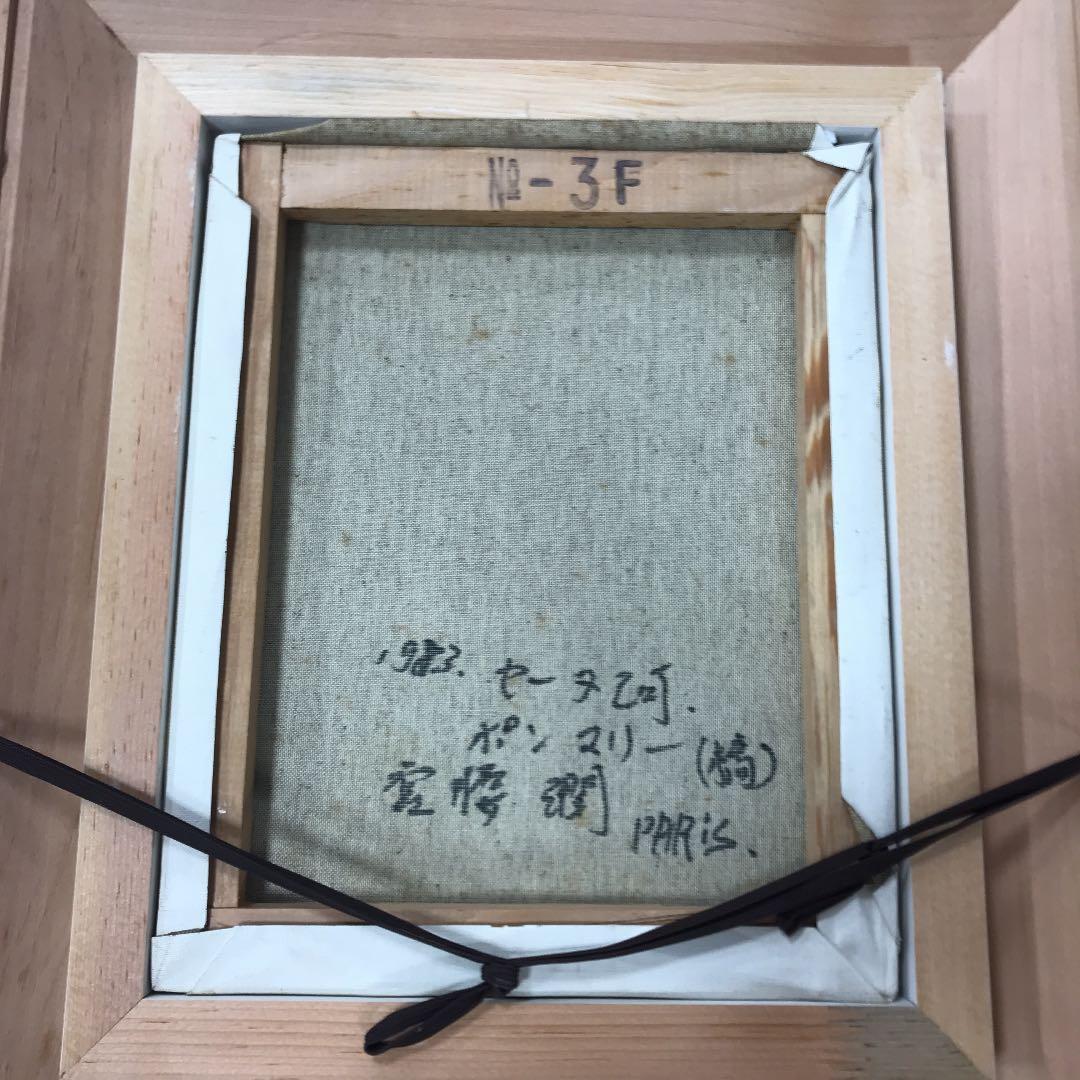 №-3F
1983. セーヌ河.
ポン マリー (橋)
PARiS.